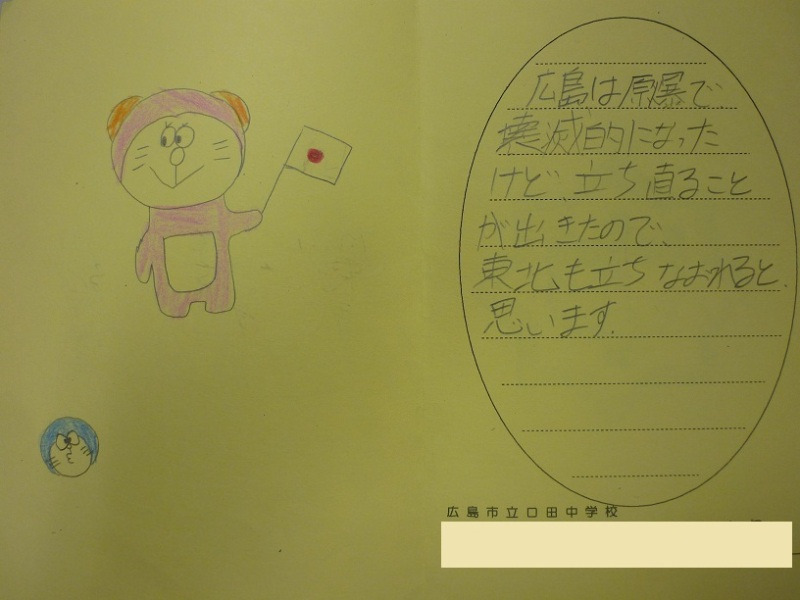 広島は原爆で、
壊滅的になった
けど、立ち直ること
が出きたので、
東北も立ちなおれると、
思います。
広島市立口田中学校